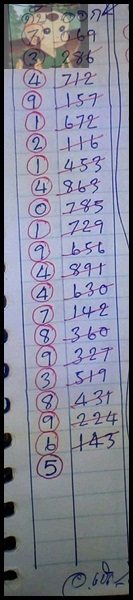 7 269
3 286
4 712
9 157
1 672
2 116
1 453
4 863
0 785
1 729
9 656
4 891
4 630
7 142
8 360
9 327
3 519
8 431
9 224
6 143
5